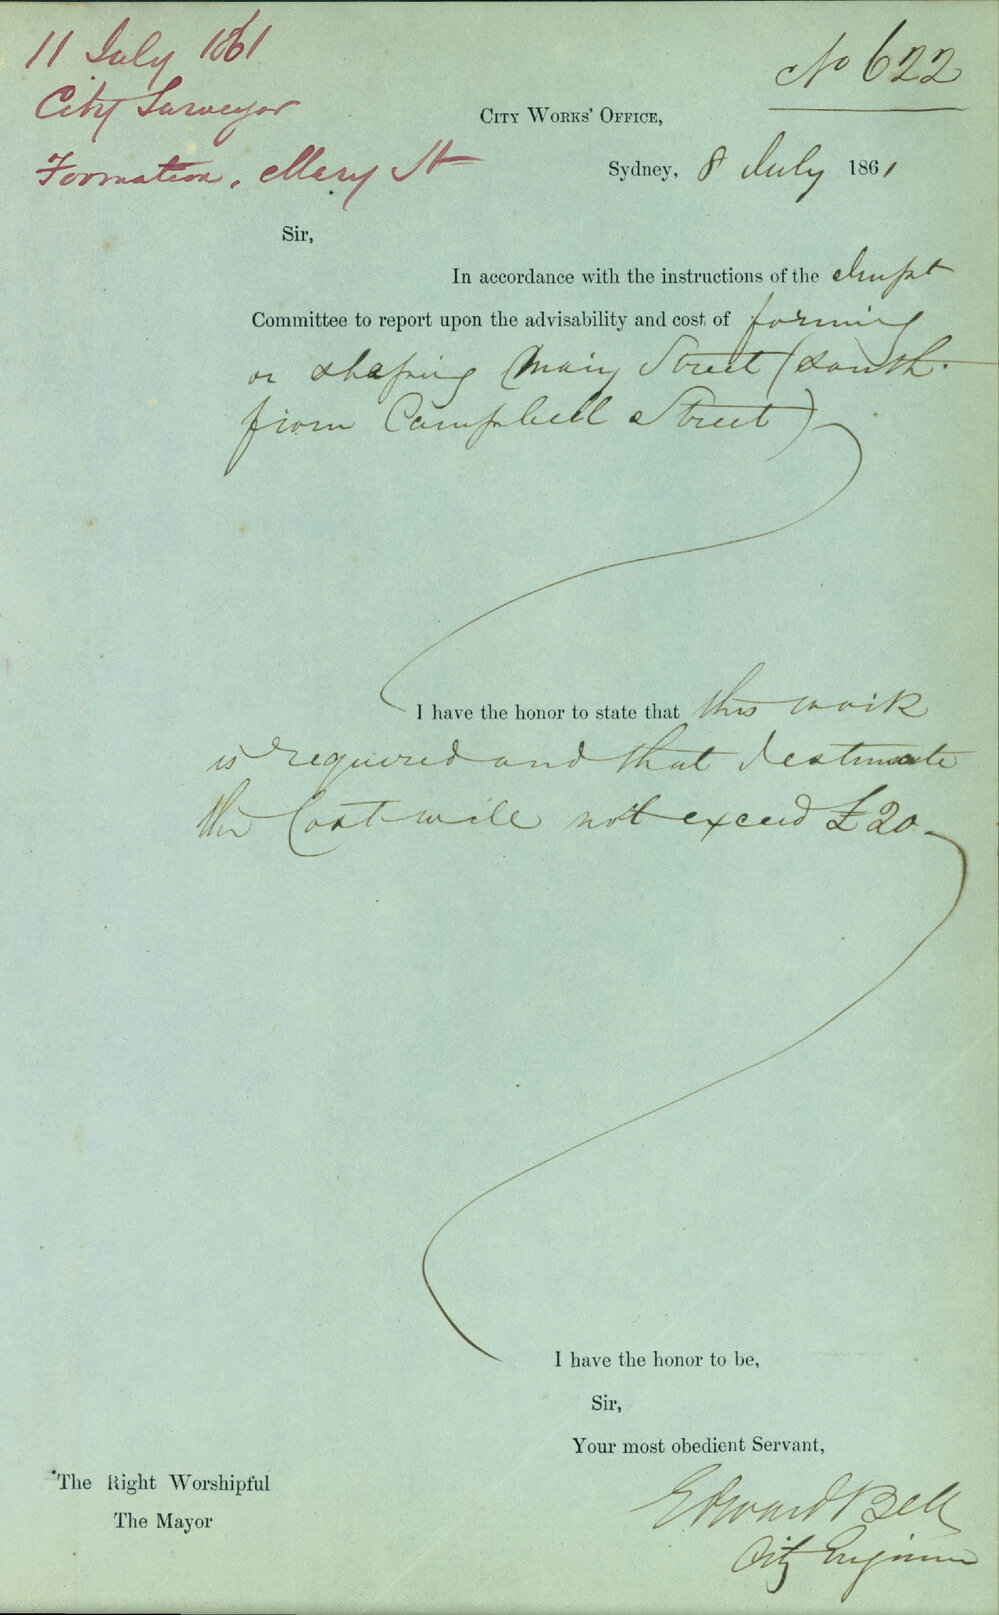 11 July 1861
City Surveyor
Formation, Mary St
No 622
City Works' Office,
Sydney, 8 July 1861
Sir,
In accordance with the instructions of the Impt
Committee to report upon the advisability and cost of forming
or shaping Mary Street (South
from Campbell Street)
I have the honor to state that this work
is required and that I estimate
the Cost will not exceed £20
I have the honor to be,
Sir,
Your most obedient Servant,
Edward Bell
City Engineer
The Right Worshipful
The Mayor